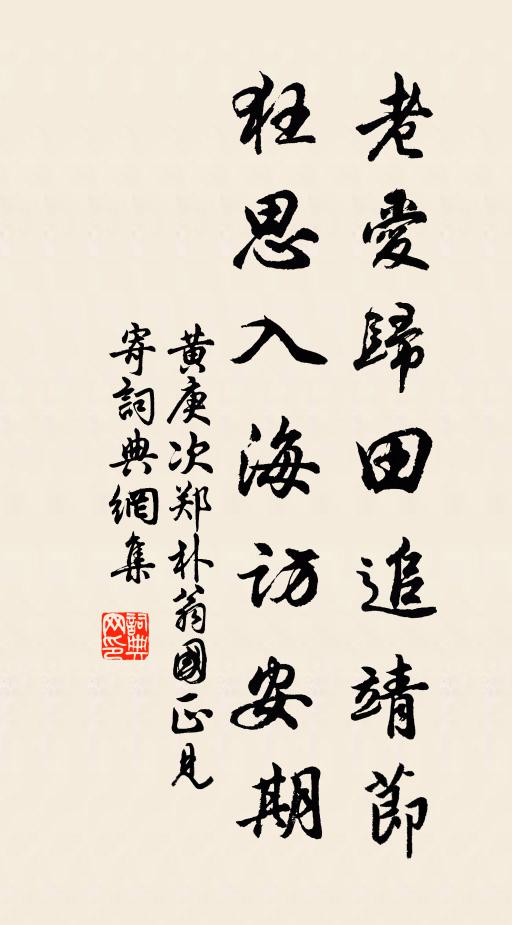 老愛歸田追靖節
狂思入海訪安期
黄庚次郑朴翁國正見
寄詞典網集
詞典网印